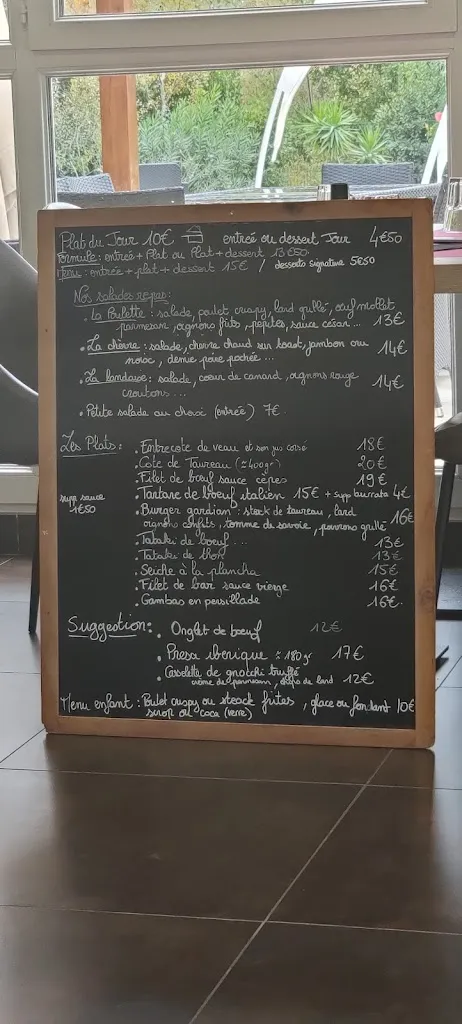 Plat du Jour 10€ entrée ou dessert Jour 4€50
Formule: entrée + Plat ou Plat + dessert 13€50
Menu: entrée + plat + dessert 15€ / desserts signature 5€50
Nos salades repas:
• La Poulette: salade, poulet crispy, lard grillé, œuf mollet
parmesan, oignons frits, pépites, sauce césar... 13€
• La chèvre: salade, chèvre chaud sur toast, jambon cru
noix, demie poire pochée... 14€
• La landaise: salade, cœur de canard, oignons rouge
croutons... 14€
• Petite salade au choix (entrée) 7€
Les Plats: • Entrecote de veau et son jus corsé 18€
• Cote de Taureau (≈400gr) 20€
• Filet de bœuf sauce cèpes 19€
supp sauce 1€50
• Tartare de bœuf italien 15€ + supp burrata 4€
• Burger gardian: steack de taureau, lard
oignons confits, tomme de savoie, poivrons grillé 16€
• Tataki de bœuf... 13€
• Tataki de thon 13€
• Seiche à la plancha 15€
• Filet de bar sauce vierge 16€
• Gambas en persillade 16€
Suggestion: • Onglet de bœuf 12€
• Presa iberique ≈180gr 17€
• Cassolette de gnocchi truffé
crème de parmesan, de lard 12€
Menu enfant: Poulet crispy ou steack frites, glace ou fondant 10€
sirop ou coca (verre)